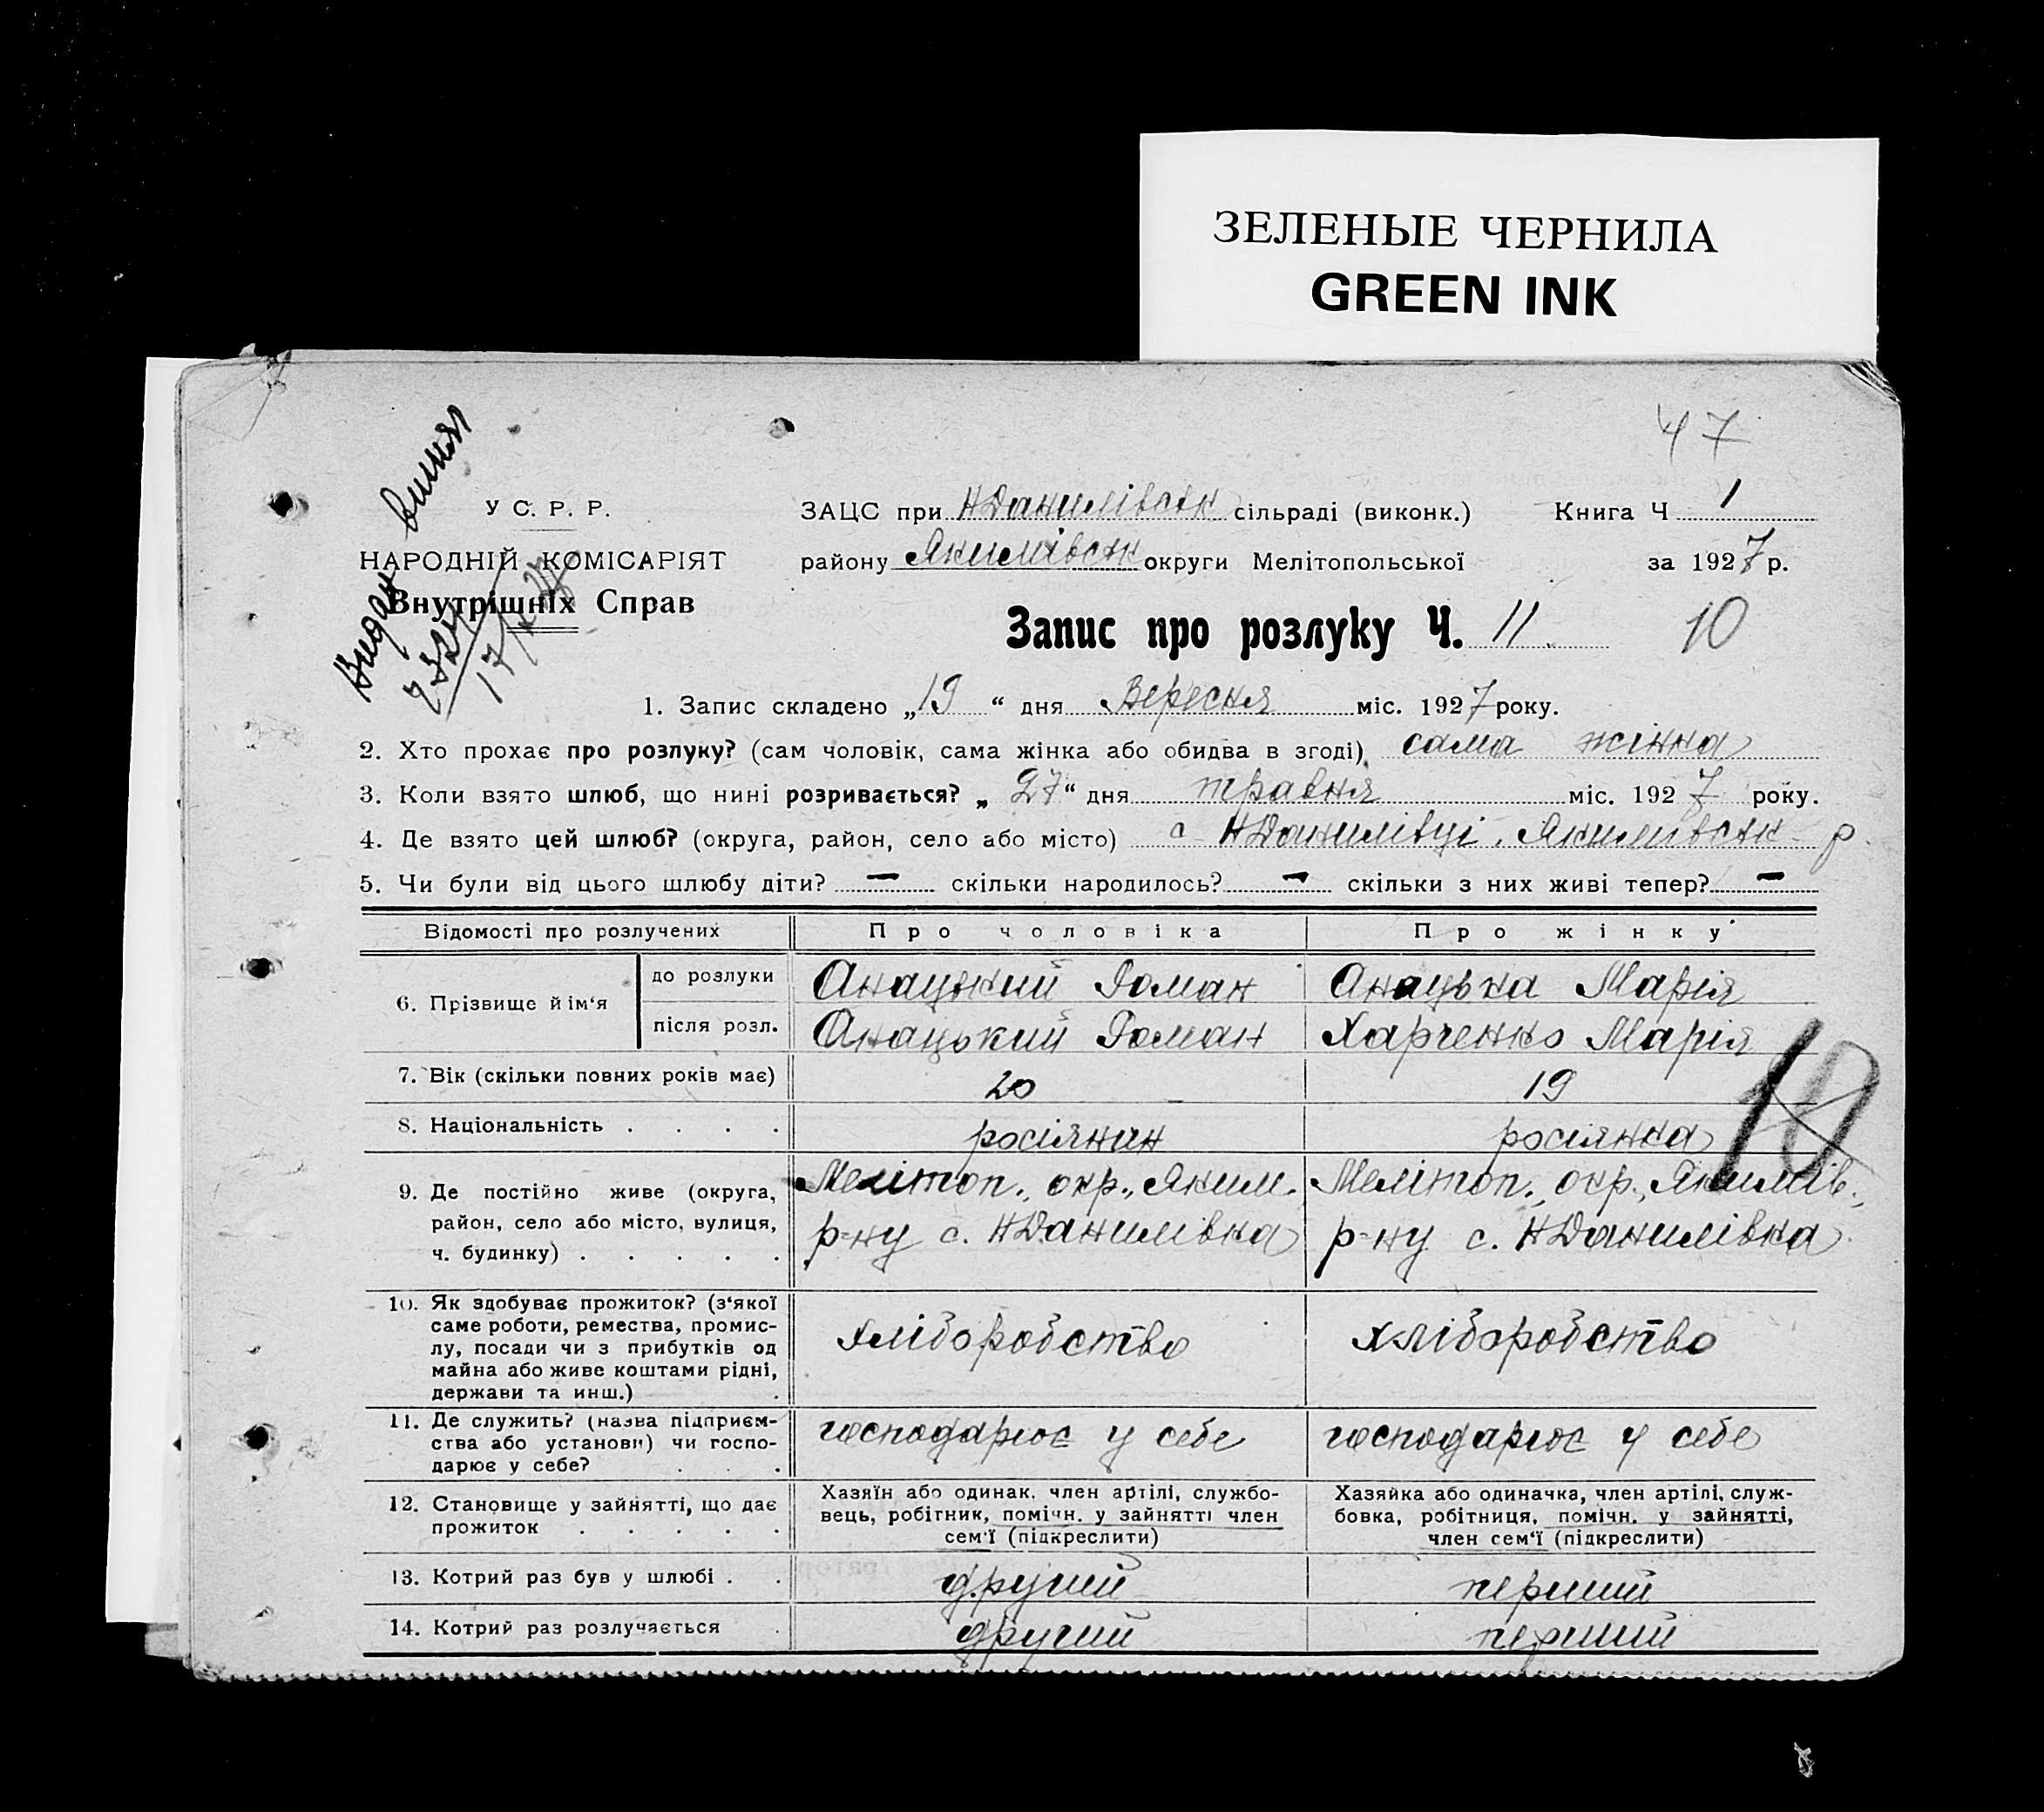 ЗЕЛЕНЫЕ ЧЕРНИЛА
GREEN INK
47
Видан
У С. Р. Р.
НАРОДНІЙ КОМІСАРІЯТ
Внутрішніх Справ
ЗАЦС при НДанилівськ сільраді (виконк.) Книга Ч 1
району Якимівськ округи Мелітопольської за 1927 р.
Запис про розлуку Ч. 11 10
1. Запис складено „19“ дня Вересня міс. 1927 року.
2. Хто прохає про розлуку? (сам чоловік, сама жінка або обидва в згоді) сама жінка
3. Коли взято шлюб, що нині розривається? „27“ дня травня міс. 1927 року.
4. Де взято цей шлюб? (округа, район, село або місто) с НДанилівці, Якимівськ р
5. Чи були від цього шлюбу діти? — скільки народилось? — скільки з них живі тепер? —
Відомості про розлучених Про чоловіка Про жінку
6. Прізвище й ім‘я
до розлуки Анацький Роман Анацька Марія
після розл. Анацький Роман Харченко Марія
7. Вік (скільки повних років має) 20 19
8. Національність . . . . росіянин росіянка
10
9. Де постійно живе (округа, Мелітоп. окр., Яким. Мелітоп. окр., Якимів.
район, село або місто, вулиця, р-ну с. НДанилівка р-ну с. НДанилівка
ч. будинку) . . . . .
10. Як здобуває прожиток? (з‘якої
саме роботи, ремества, промис-
лу, посади чи з прибутків од хліборобство хліборобство
майна або живе коштами рідні,
держави та инш.) .
11. Де служить? (назва підприєм-
ства або установи) чи госпо- господарює у себе господарює у себе
дарює у себе? . .
12. Становище у зайнятті, що дає
прожиток . . . . .
Хазяїн або одинак. член артілі, службо-
вець, робітник, помічн. у зайнятті член
сем‘ї (підкреслити)
Хазяйка або одиначка, член артілі, служ-
бовка, робітниця, помічн. у зайнятті,
член сем‘ї (підкреслити)
13. Котрий раз був у шлюбі . . другий перший
14. Котрий раз розлучається . другий перший